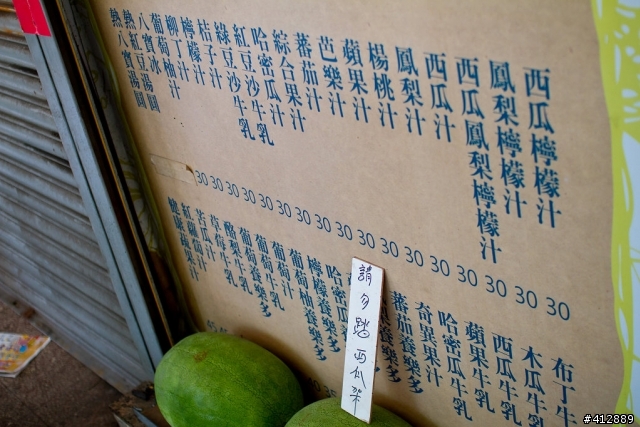 西瓜檸檬汁
鳳梨檸檬汁
西瓜鳳梨檸檬汁
西瓜汁
鳳梨汁
楊桃汁
蘋果汁
芭樂汁
蕃茄汁
綜合果汁
哈密瓜牛乳
紅豆沙牛乳
綠豆沙
桔子汁
檸檬汁
柳丁汁
葡萄柚汁
八寶冰
熱紅豆湯圓
熱八寶湯圓
30 30 30 30 30 30 30 30 30 30 30 30 30 30 30
布丁牛
木瓜牛
西瓜牛乳
蘋果牛乳
哈密瓜牛乳
奇異果汁
蕃茄養樂多
養樂多
哈密瓜
檸檬養樂多
葡萄柚養樂多
葡萄汁
葡萄養樂多
葡萄牛乳
酪梨牛乳
草莓牛乳
苦瓜汁
紅蘿蔔汁
請勿踏西瓜架
#412889